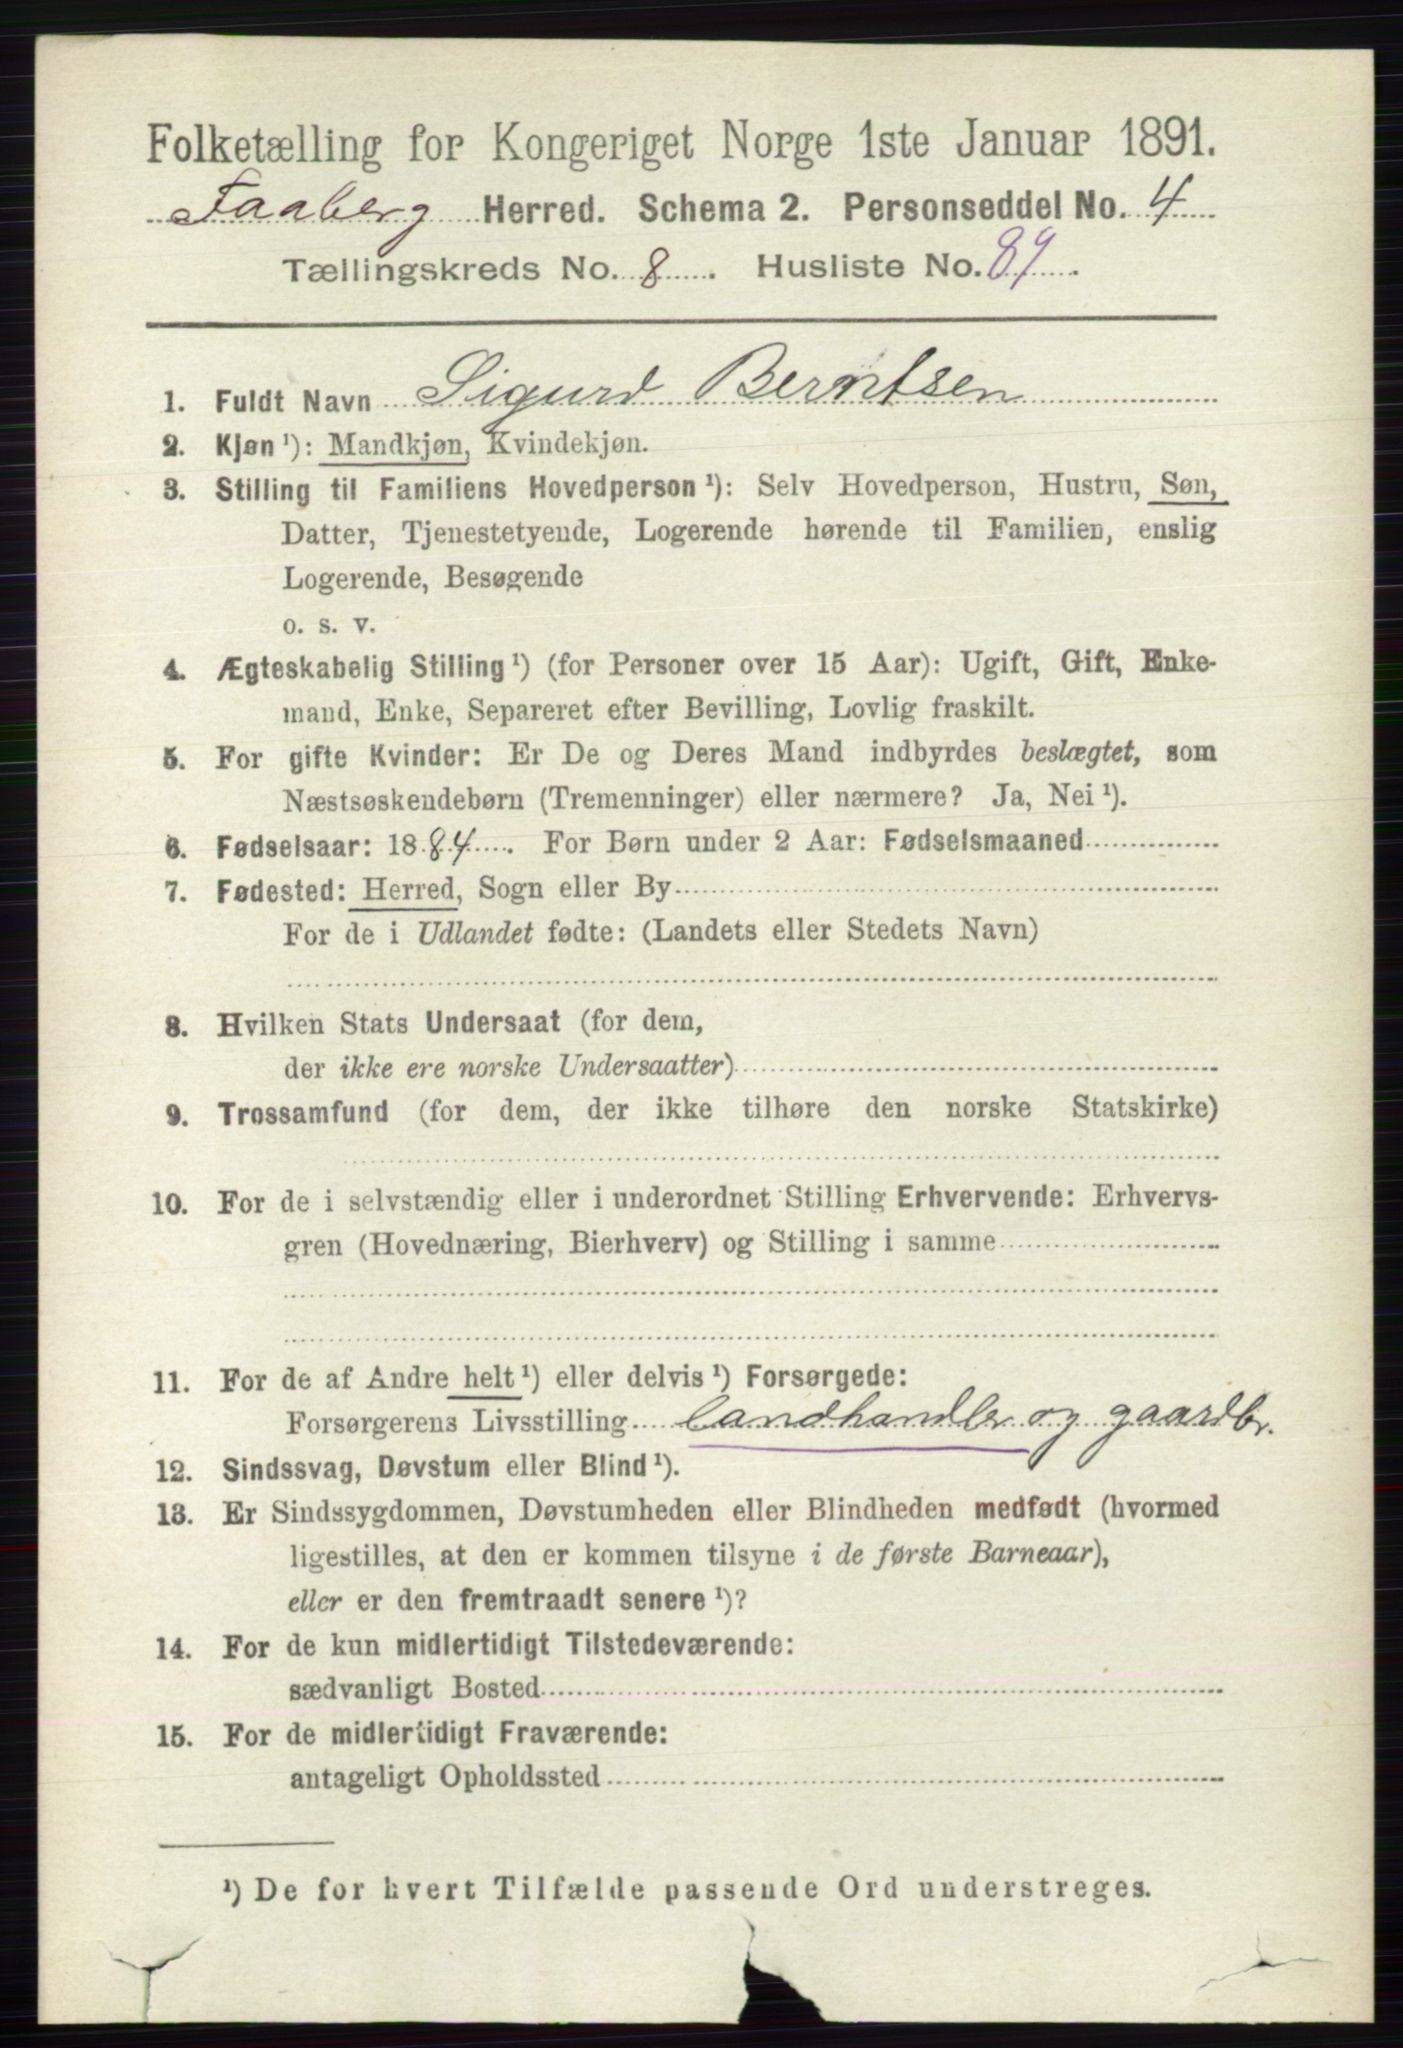 Folketælling for Kongeriget Norge 1ste Januar 1891.
Faaberg Herred. Schema 2. Personseddel No. 4
Tællingskreds No. 8. Husliste No. 89.
1. Fuldt Navn Sigurd Berntsen
2. Kjøn ¹): Mandkjøn, Kvindekjøn.
3. Stilling til Familiens Hovedperson ¹): Selv Hovedperson, Hustru, Søn,
Datter, Tjenestetyende, Logerende hørende til Familien, enslig
Logerende, Besøgende
o. s. v.
4. Ægteskabelig Stilling ¹) (for Personer over 15 Aar): Ugift, Gift, Enke-
mand, Enke, Separeret efter Bevilling, Lovlig fraskilt.
5. For gifte Kvinder: Er De og Deres Mand indbyrdes beslægtet, som
Næstsøskendebørn (Tremenninger) eller nærmere? Ja, Nei ¹).
6. Fødselsaar: 1884. For Børn under 2 Aar: Fødselsmaaned
7. Fødested: Herred, Sogn eller By
For de i Udlandet fødte: (Landets eller Stedets Navn)
8. Hvilken Stats Undersaat (for dem,
der ikke ere norske Undersaatter)
9. Trossamfund (for dem, der ikke tilhøre den norske Statskirke)
10. For de i selvstændig eller i underordnet Stilling Erhvervende: Erhvervs-
gren (Hovednæring, Bierhverv) og Stilling i samme
11. For de af Andre helt ¹) eller delvis ¹) Forsørgede:
Forsørgerens Livsstilling landhandlr og gaardbr.
12. Sindssvag, Døvstum eller Blind ¹).
13. Er Sindssygdommen, Døvstumheden eller Blindheden medfødt (hvormed
ligestilles, at den er kommen tilsyne i de første Barneaar),
eller er den fremtraadt senere ¹)?
14. For de kun midlertidigt Tilstedeværende:
sædvanligt Bosted
15. For de midlertidigt Fraværende:
antageligt Opholdssted
¹) De for hvert Tilfælde passende Ord understreges.